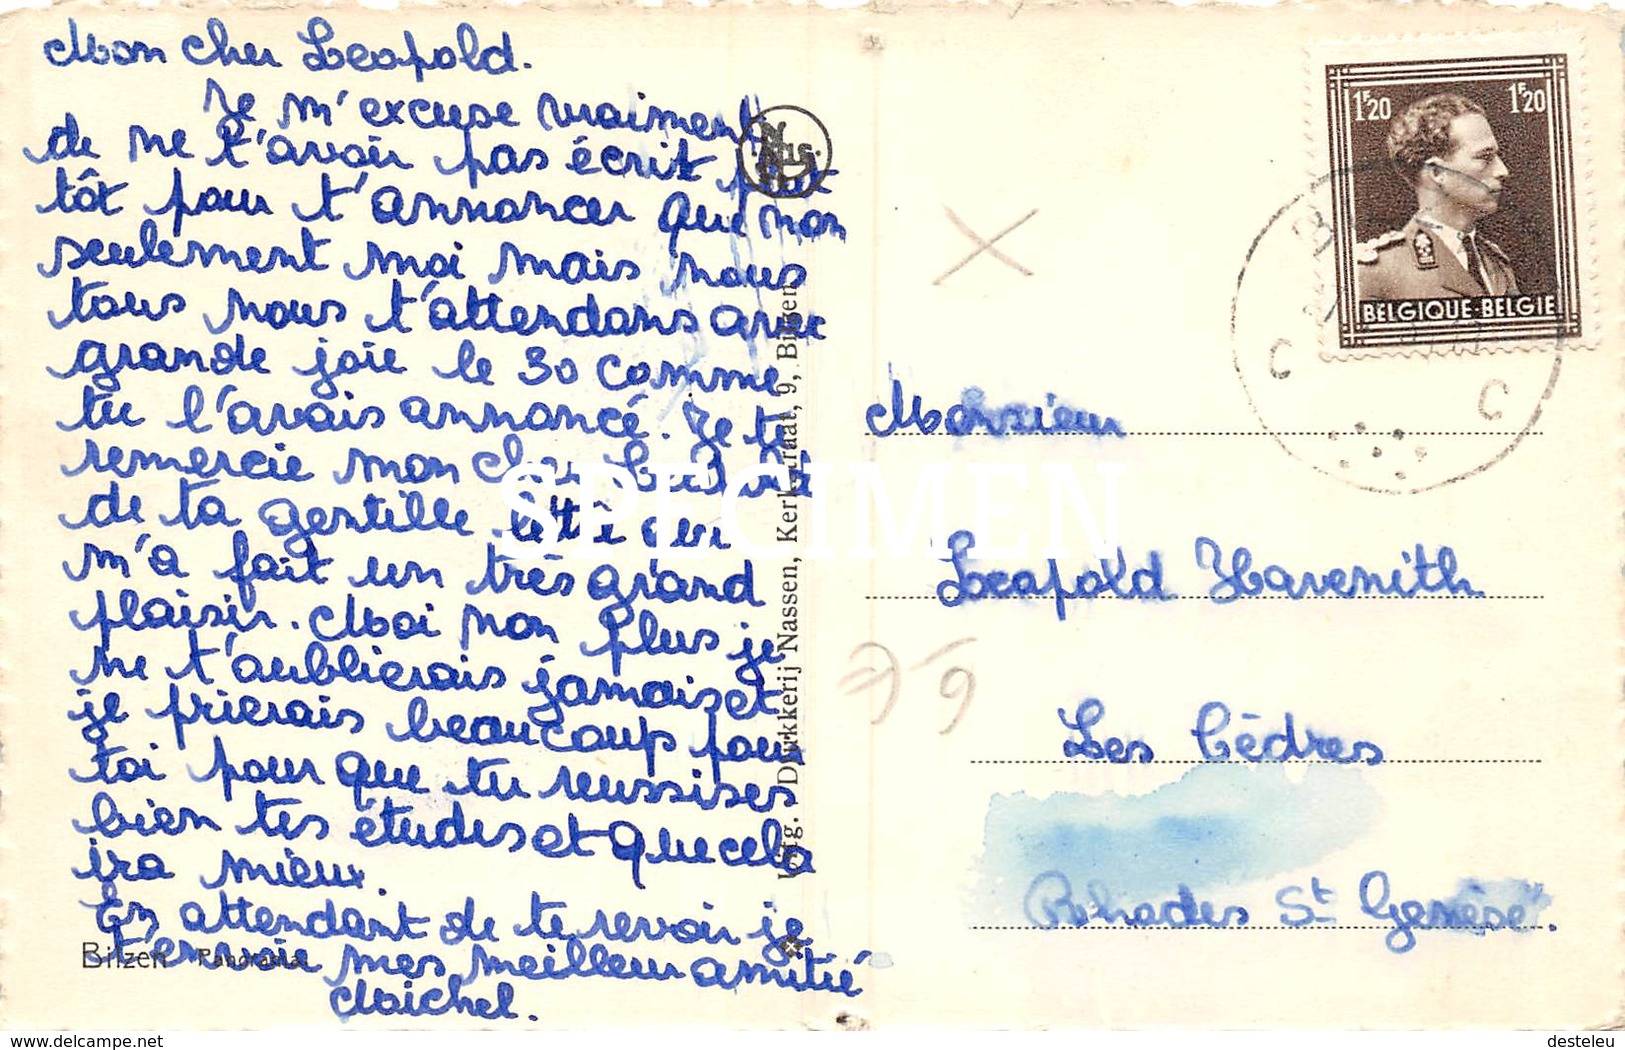 Mon cher Leopold.
Je m'excuse vraiment
de ne t'avoir pas écrit plut
tôt pour t'annoncer que non
seulement moi mais nous
tous nous t'attendons avec
grande joie le 30 comme
tu l'avais annoncé. Je te
remercie mon cher
de ta gentille lettre qui
m'a fait un très grand
plaisir. Moi non plus je
ne t'oublierais jamais et
je prierais beaucoup pour
toi pour que tu reussises
bien tes études et que cela
ira mieux.
En attendant de te revoir je
t'envoie mes meilleur amitié
Maichel.
Bilzen Panorama
Uitg. Drukkerij Nassen, Kerkstraat, 9, Bilsen
1F20 1F20
BELGIQUE-BELGIE
B
C C
Monsieur
Leopold Havenith
Les Cèdres
Rhodes St Genèse.
79
SPECIMEN
www.delcampe.net
desteleu